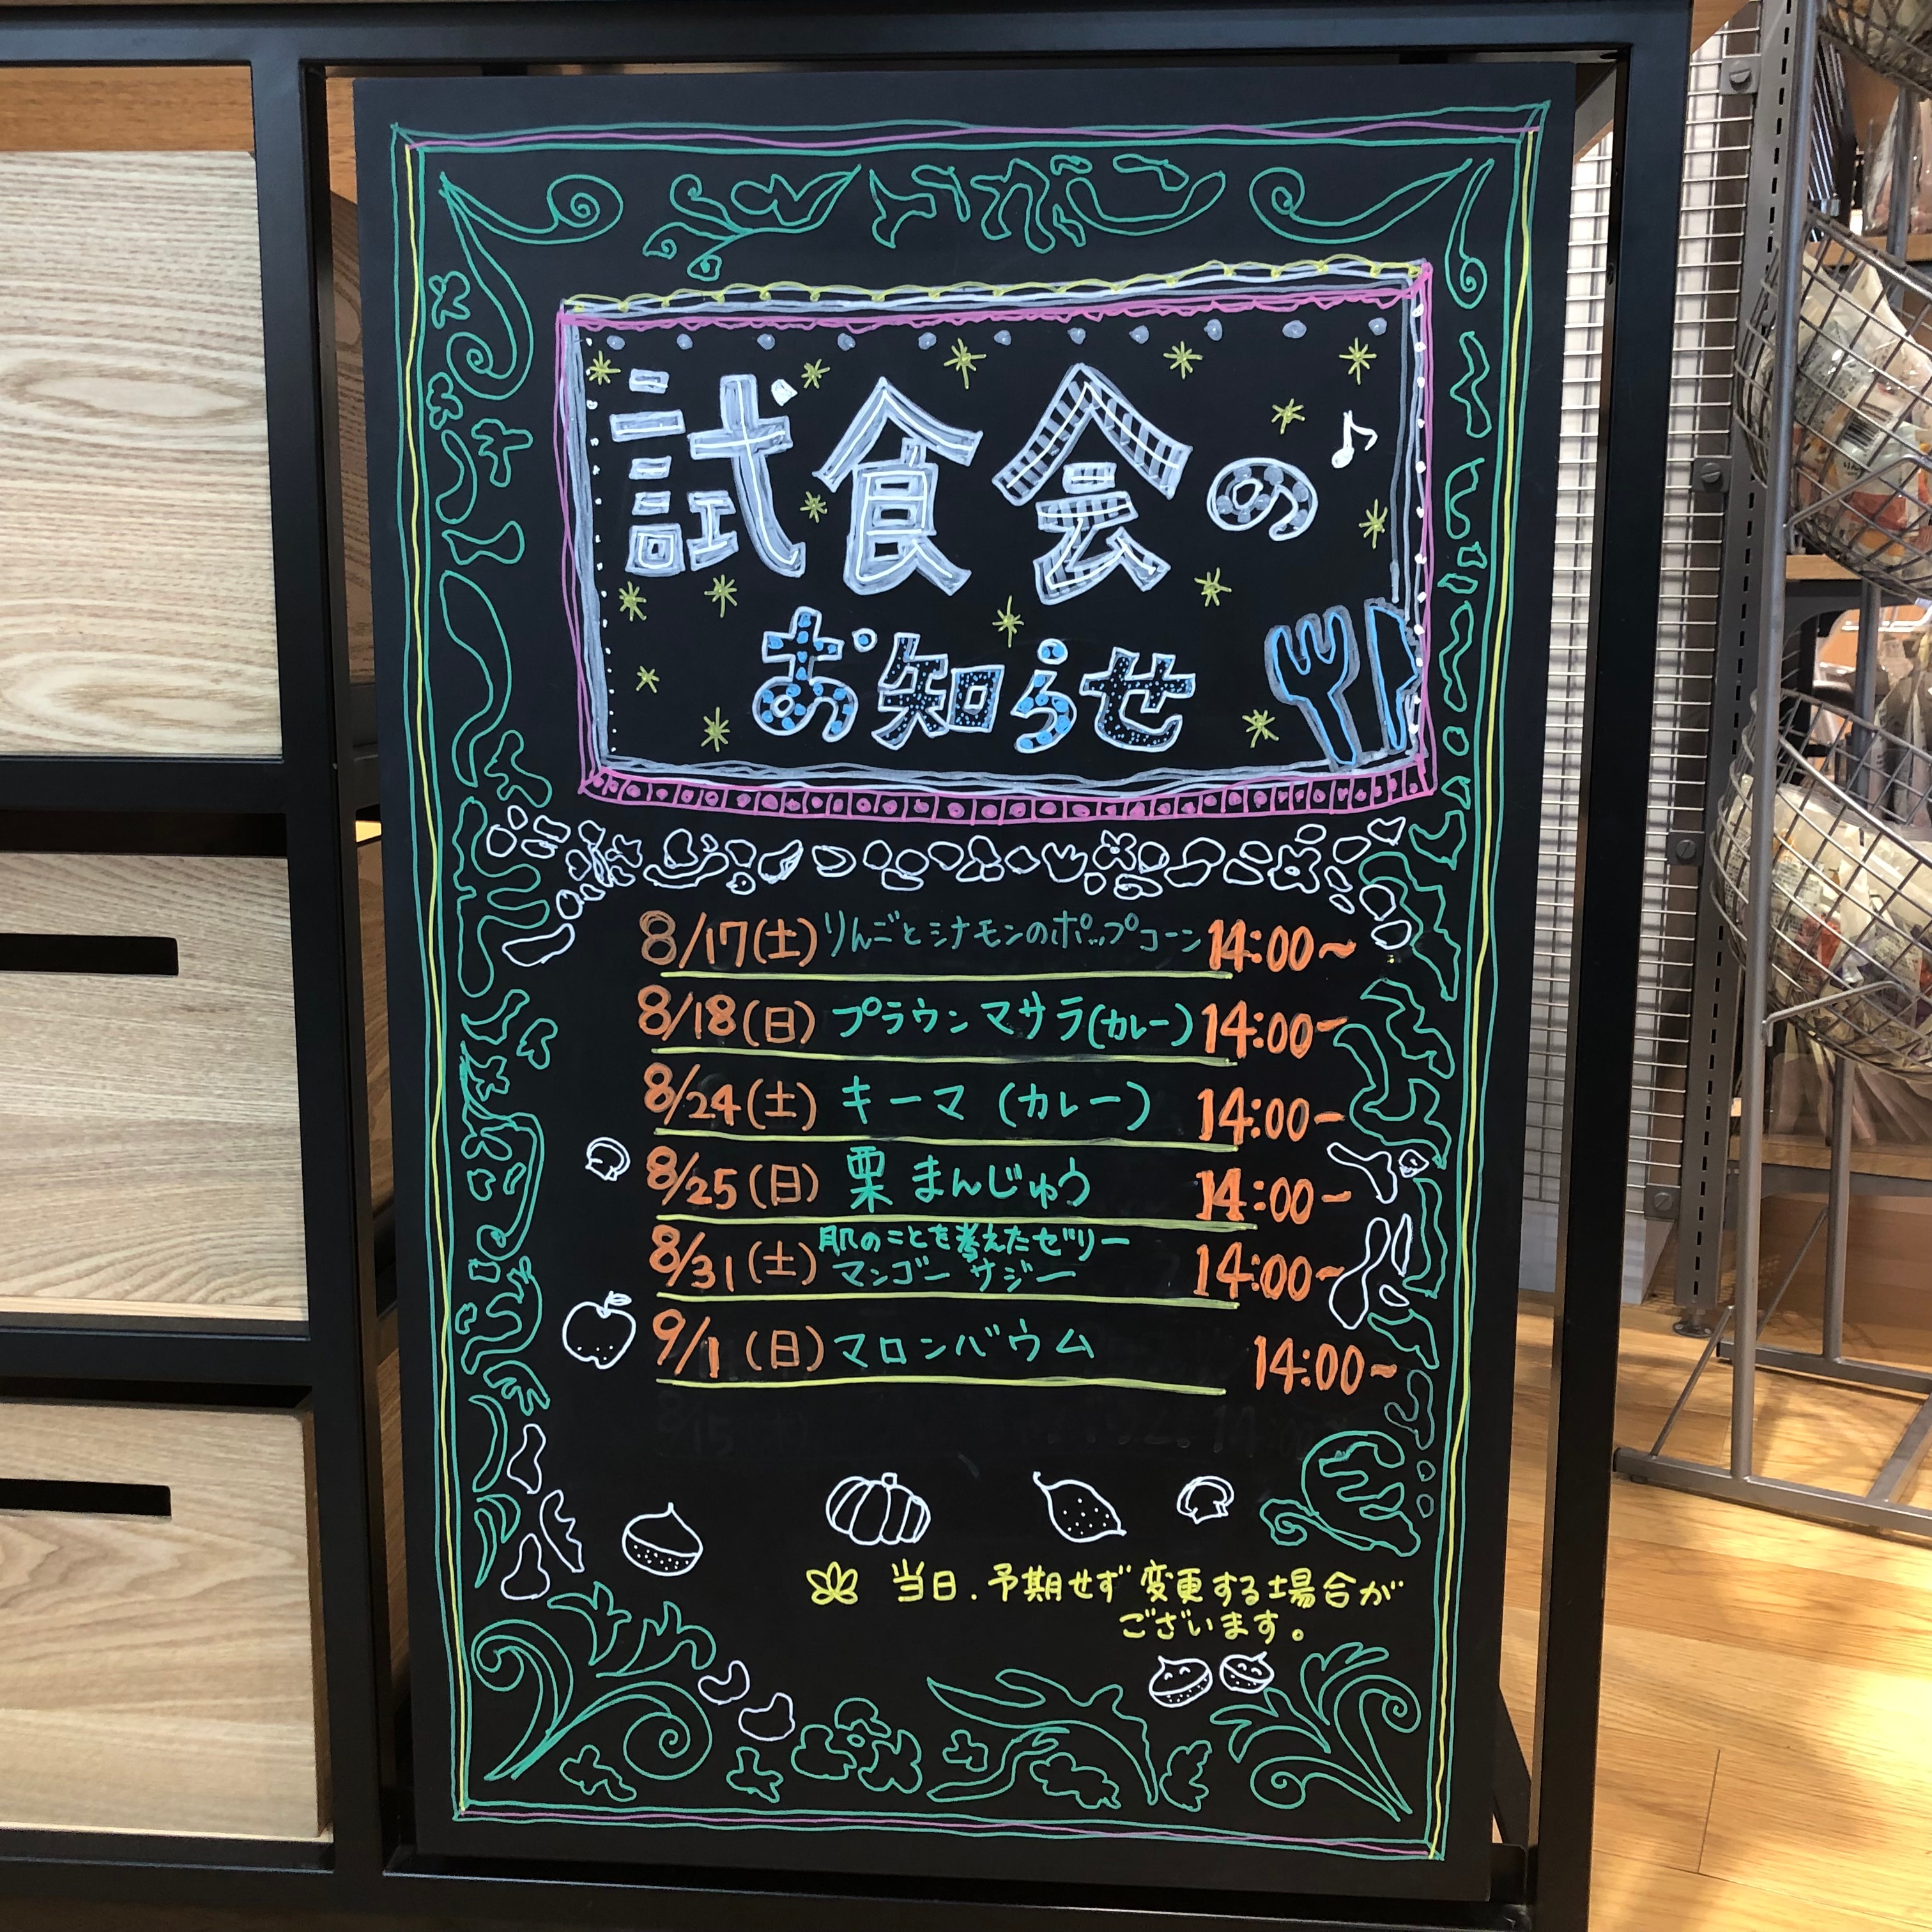 試食会の
お知らせ
8/17(土) りんごとシナモンのポップコーン 14:00~
8/18(日) プラウン マサラ(カレー) 14:00~
8/24(土) キーマ (カレー) 14:00~
8/25(日) 栗 まんじゅう 14:00~
8/31(土) 肌のことを考えたゼリー
マンゴー サジー 14:00~
9/1(日) マロンバウム 14:00~
当日.予期せず変更する場合が
ございます。